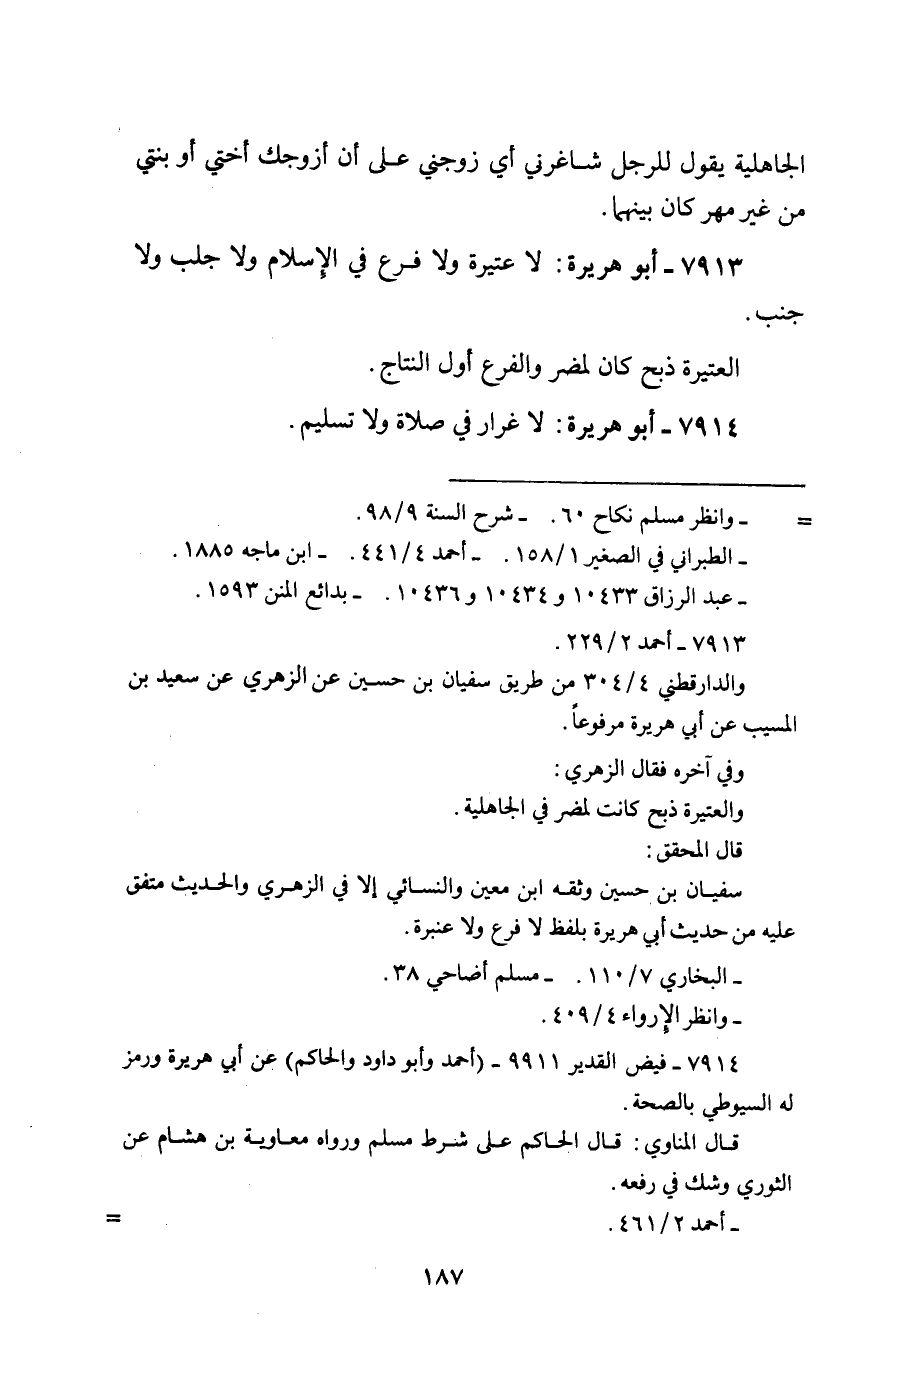 الجاهلية يقول للرجل شاغرني أي زوجني على أن أزوجك أختي أو بنتي
من غير مهر كان بينهما.
٧٩١٣ ـ أبو هريرة: لا عتيرة ولا فرع في الإسلام ولا جلب ولا
جنب.
العتيرة ذبح كان لمضر والفرع أول النتاج.
٧٩١٤ ـ أبو هريرة: لا غرار في صلاة ولا تسليم.
= ـ وانظر مسلم نكاح ٦٠. ـ شرح السنة ٩٨/٩.
ـ الطبراني في الصغير ١٥٨/١. ـ أحمد ٤٤١/٤. ـ ابن ماجه ١٨٨٥.
ـ عبد الرزاق ١٠٤٣٣ و ١٠٤٣٤ و ١٠٤٣٦. ـ بدائع المنن ١٥٩٣.
٧٩١٣ ـ أحمد ٢٢٩/٢.
والدارقطني ٣٠٤/٤ من طريق سفيان بن حسين عن الزهري عن سعيد بن
المسيب عن أبي هريرة مرفوعاً.
وفي آخره فقال الزهري:
والعتيرة ذبح كانت لمضر في الجاهلية.
قال المحقق:
سفيان بن حسين وثقه ابن معين والنسائي إلا في الزهري والحديث متفق
عليه من حديث أبي هريرة بلفظ لا فرع ولا عنبرة.
ـ البخاري ١١٠/٧. ـ مسلم أضاحي ٣٨.
ـ وانظر الإرواء ٤٠٩/٤.
٧٩١٤ ـ فيض القدير ٩٩١١ ـ (أحمد وأبو داود والحاكم) عن أبي هريرة ورمز
له السيوطي بالصحة.
قال المناوي: قال الحاكم على شرط مسلم ورواه معاوية بن هشام عن
الثوري وشك في رفعه.
ـ أحمد ٤٦١/٢. =
١٨٧